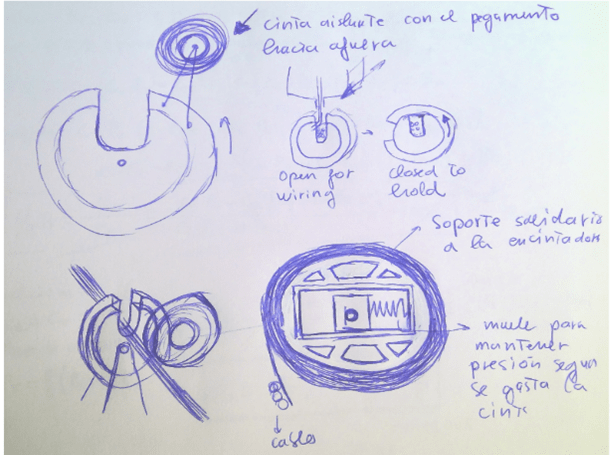 cinta aislante con el pegamento
hacia afuera
Open for
wiring
closed to
hold
Soporte solidario
a la encintadora
muelle para
mantener
presión segun
se gasta la
cinta
cables